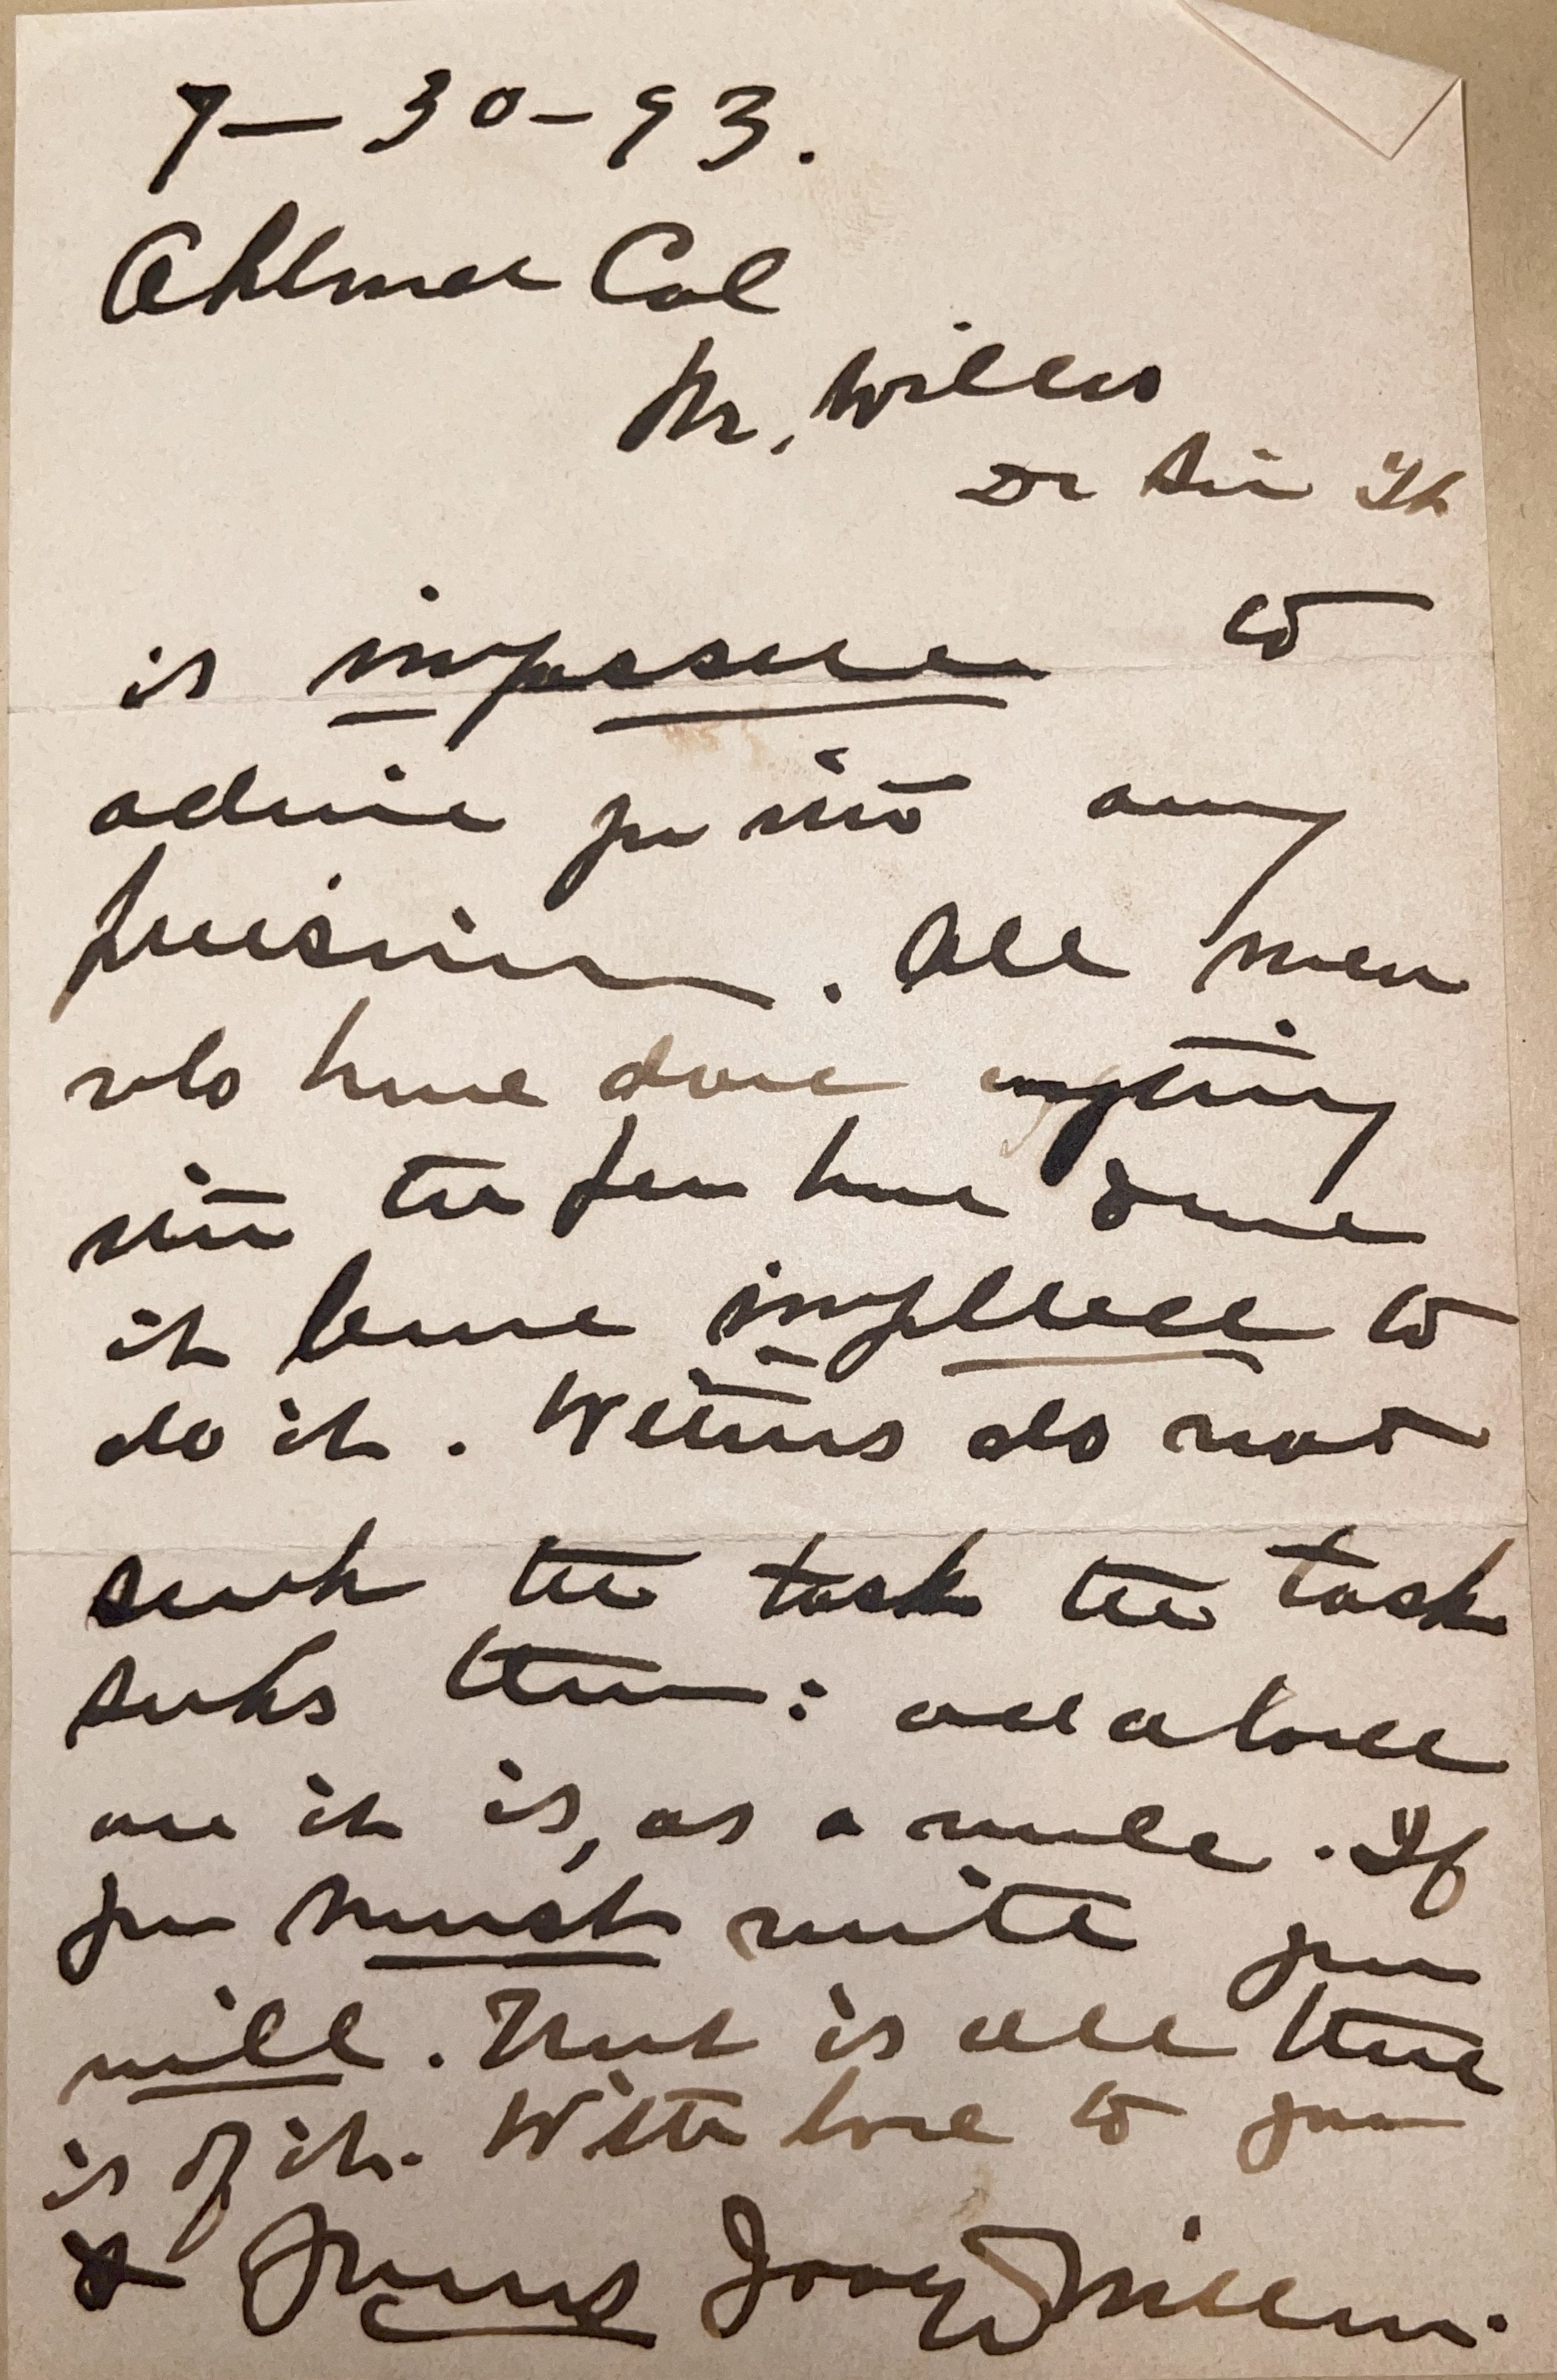 7-30-93.
Oakland Cal
Mr. Willis
Dr Sir It
is impossible to
advise you into any
precision. All men
who have done anything
with the pen have done
it because impelled to
do it. Writers do not
seek the task the task
seeks them: and a love
one it is, as a rule. If
you must write you
will. That is all there
is of it. With love to you
& yours Joaquin Miller.